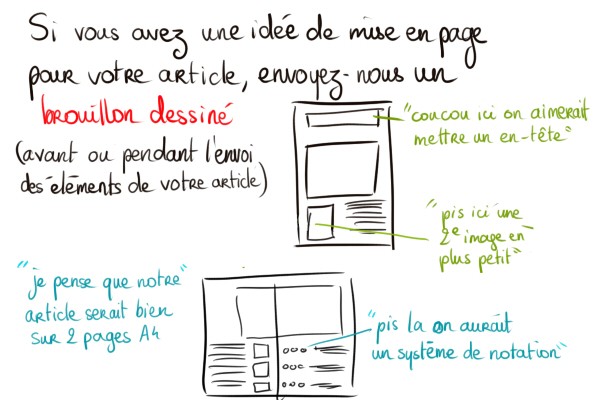 Si vous avez une idée de mise en page
pour votre article, envoyez-nous un
brouillon dessiné
(avant ou pendant l'envoi
des éléments de votre article)
"coucou ici on aimerait
mettre un en-tête"
"pis ici une
2e image en
plus petit"
"je pense que notre
article serait bien
sur 2 pages A4
"pis la on aurait
un système de notation"